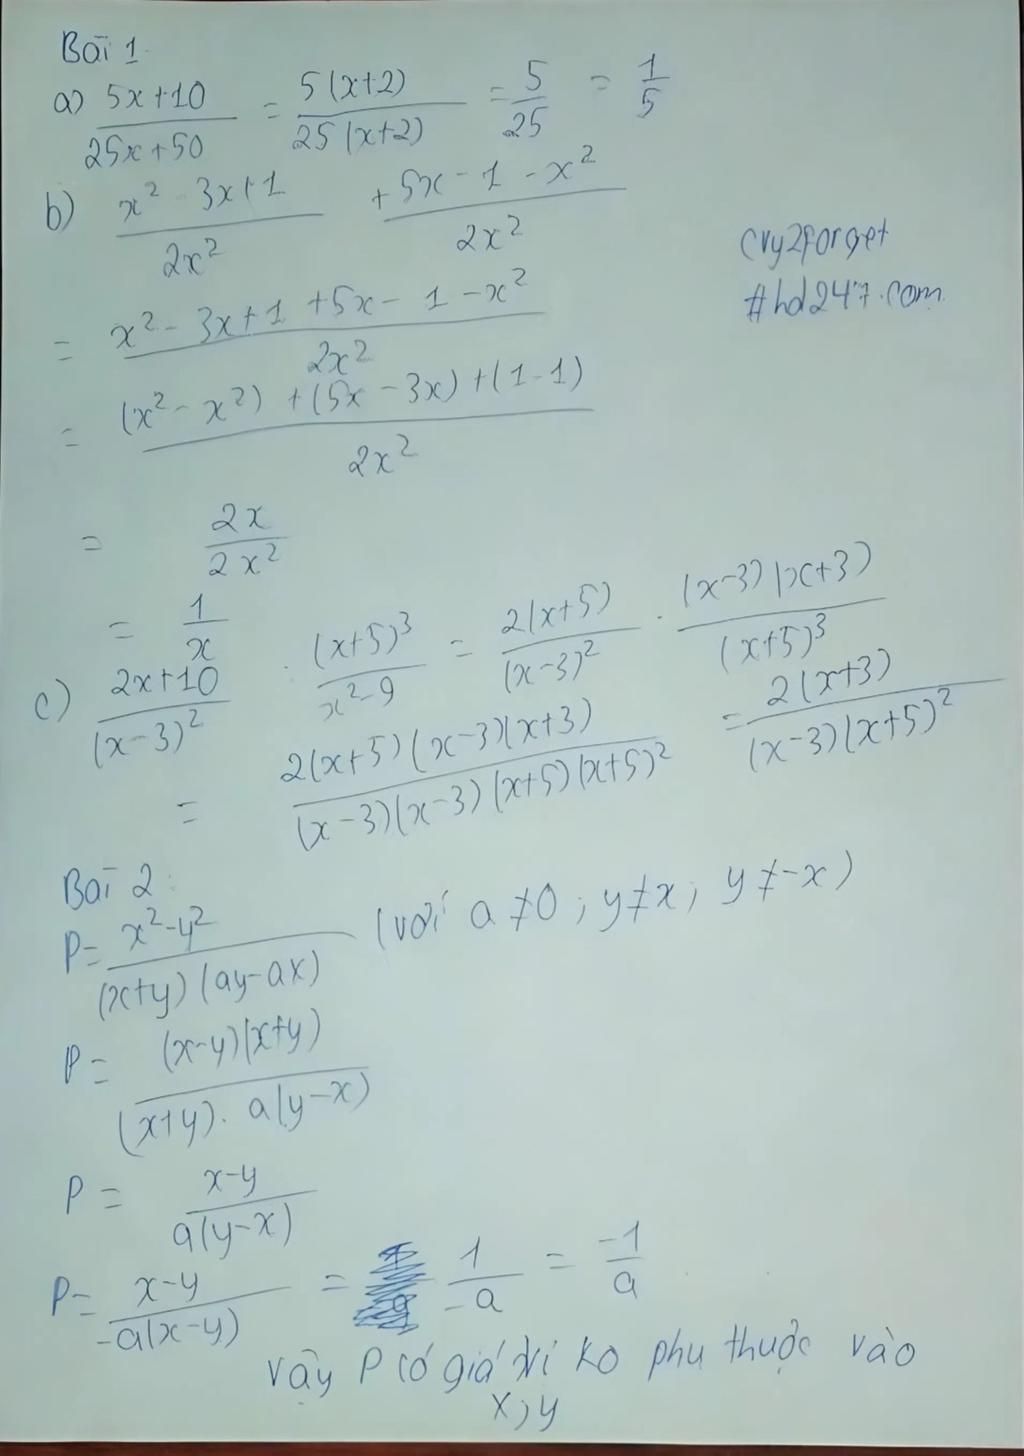 Bài 1
a) 5x+10 / 25x+50 = 5(x+2) / 25(x+2) = 5/25 = 1/5
b) x² - 3x+1 / 2x² + 5x - 1 - x² / 2x²
cry2forget
#hd247.com
= x² - 3x+1 +5x - 1 - x² / 2x²
= (x² - x²) + (5x - 3x) + (1-1) / 2x²
= 2x / 2x²
= 1/x
c) 2x+10 / (x-3)² : (x+5)³ / x²-9 = 2(x+5) / (x-3)² . (x-3)(x+3) / (x+5)³
= 2(x+5)(x-3)(x+3) / (x-3)(x-3)(x+5)(x+5)² = 2(x+3) / (x-3)(x+5)²
Bài 2:
P= x²-y² / (x+y)(ay-ax) (với a ≠0; y≠x; y≠-x)
P= (x-y)(x+y) / (x+y). a(y-x)
P = x-y / a(y-x)
P= x-y / -a(x-y) = 1 / -a = -1 / a
Vậy P có giá trí ko phụ thuộc vào
x;y